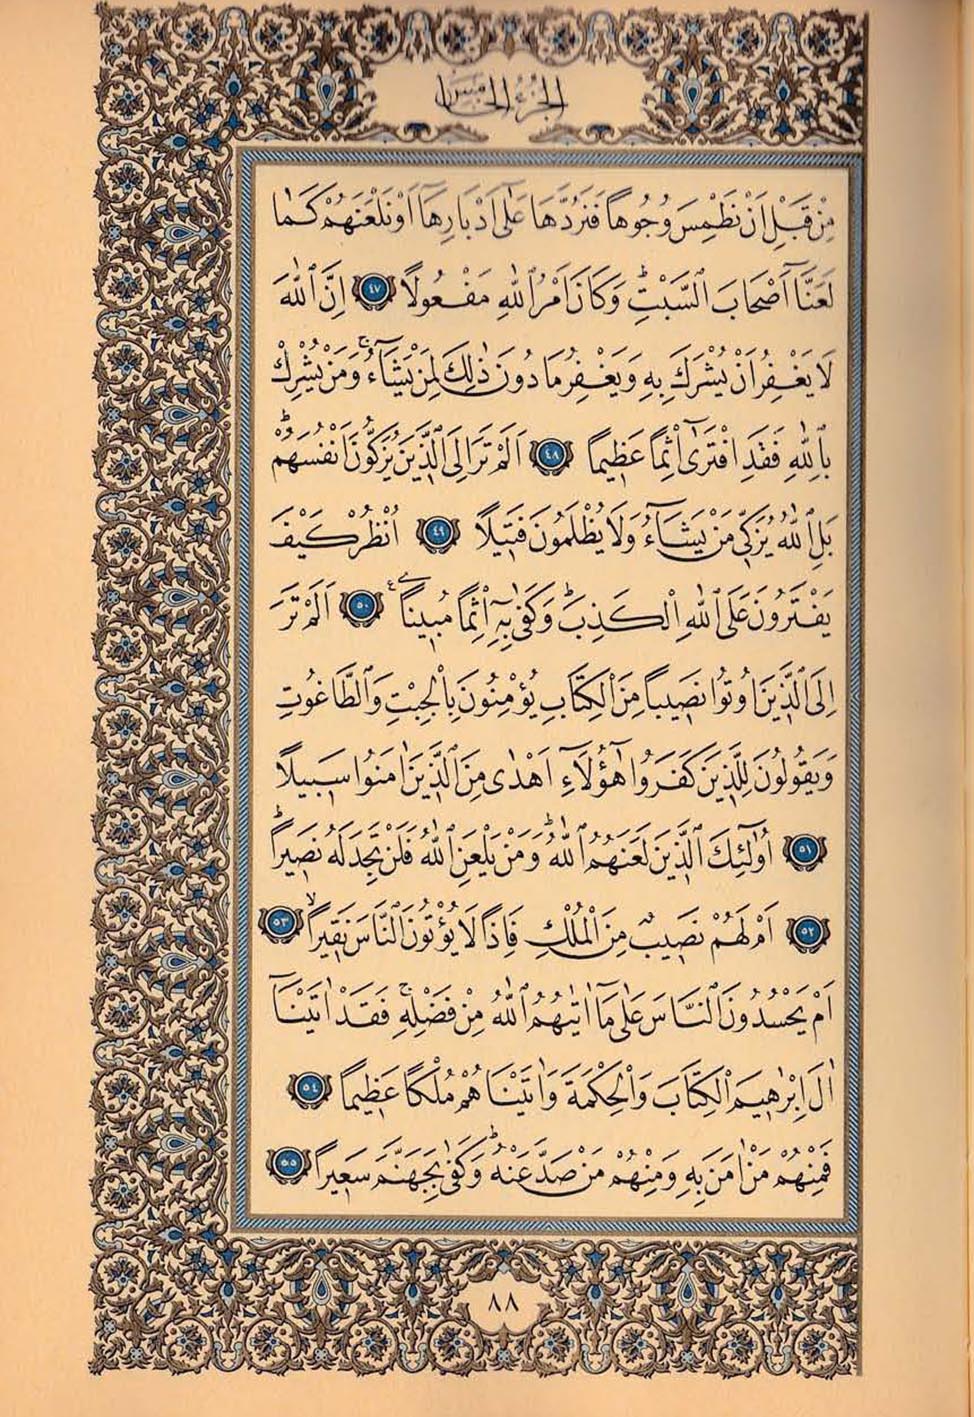 الجزء الخامس
مِنْ قَبْلِ اَنْ نَطْمِسَ وُجُوهاً فَنَرُدَّهَا عَلٰٓى اَدْبَارِهَٓا اَوْ نَلْعَنَهُمْ كَمَا
لَعَنَّٓا اَصْحَابَ السَّبْتِۜ وَكَانَ اَمْرُ اللّٰهِ مَفْعُولاً ﴿٤٧﴾ اِنَّ اللّٰهَ
لَا يَغْفِرُ اَنْ يُشْرَكَ بِهِ وَيَغْفِرُ مَا دُونَ ذٰلِكَ لِمَنْ يَشَٓاءُۚ وَمَنْ يُشْرِكْ
بِاللّٰهِ فَقَدِ افْتَرٰٓى اِثْماً عَظِيماً ﴿٤٨﴾ اَلَمْ تَرَ اِلَى الَّذِينَ يُزَكُّونَ اَنْفُسَهُمْۜ
بَلِ اللّٰهُ يُزَكِّي مَنْ يَشَٓاءُ وَلَا يُظْلَمُونَ فَتِيلاً ﴿٤٩﴾ اُنْظُرْ كَيْفَ
يَفْتَرُونَ عَلَى اللّٰهِ الْكَذِبَۜ وَكَفٰى بِهِٓ اِثْماً مُبِيناً۟ ﴿٥٠﴾ اَلَمْ تَرَ
اِلَى الَّذِينَ اُوتُوا نَصِيباً مِنَ الْكِتَابِ يُؤْمِنُونَ بِالْجِبْتِ وَالطَّاغُوتِ
وَيَقُولُونَ لِلَّذِينَ كَفَرُوا هٰٓؤُ۬لَٓاءِ اَهْدٰى مِنَ الَّذِينَ اٰمَنُوا سَبِيلاً
﴿٥١﴾ اُو۬لٰٓئِكَ الَّذِينَ لَعَنَهُمُ اللّٰهُۜ وَمَنْ يَلْعَنِ اللّٰهُ فَلَنْ تَجِدَ لَهُ نَصِيراًۜ
﴿٥٢﴾ اَمْ لَهُمْ نَصِيبٌ مِنَ الْمُلْكِ فَاِذاً لَا يُؤْتُونَ النَّاسَ نَقِيراًۙ ﴿٥٣﴾
اَمْ يَحْسُدُونَ النَّاسَ عَلٰى مَٓا اٰتٰيهُمُ اللّٰهُ مِنْ فَضْلِهِۚ فَقَدْ اٰتَيْنَٓا
اٰلَ اِبْرٰهِيمَ الْكِتَابَ وَالْحِكْمَةَ وَاٰتَيْنَاهُمْ مُلْكاً عَظِيماً ﴿٥٤﴾
فَمِنْهُمْ مَنْ اٰمَنَ بِهِ وَمِنْهُمْ مَنْ صَدَّ عَنْهُۜ وَكَفٰى بِجَهَنَّمَ سَعِيراً ﴿٥٥﴾
٨٨